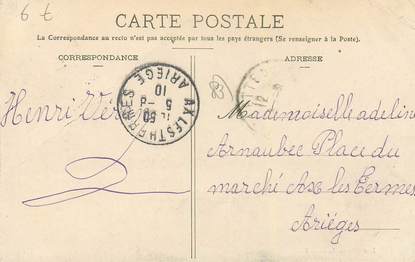 6 t
CARTE POSTALE
La Correspondance au recto n'est pas acceptée par tous les pays étrangers (Se renseigner à la Poste).
CORRESPONDANCE
ADRESSE
AX LES THERMES
ARIÈGE
10
5 -9
09
Henri
Mademoiselle adeline
Arnaubec Place du
marché Ax les Termes
Arièges